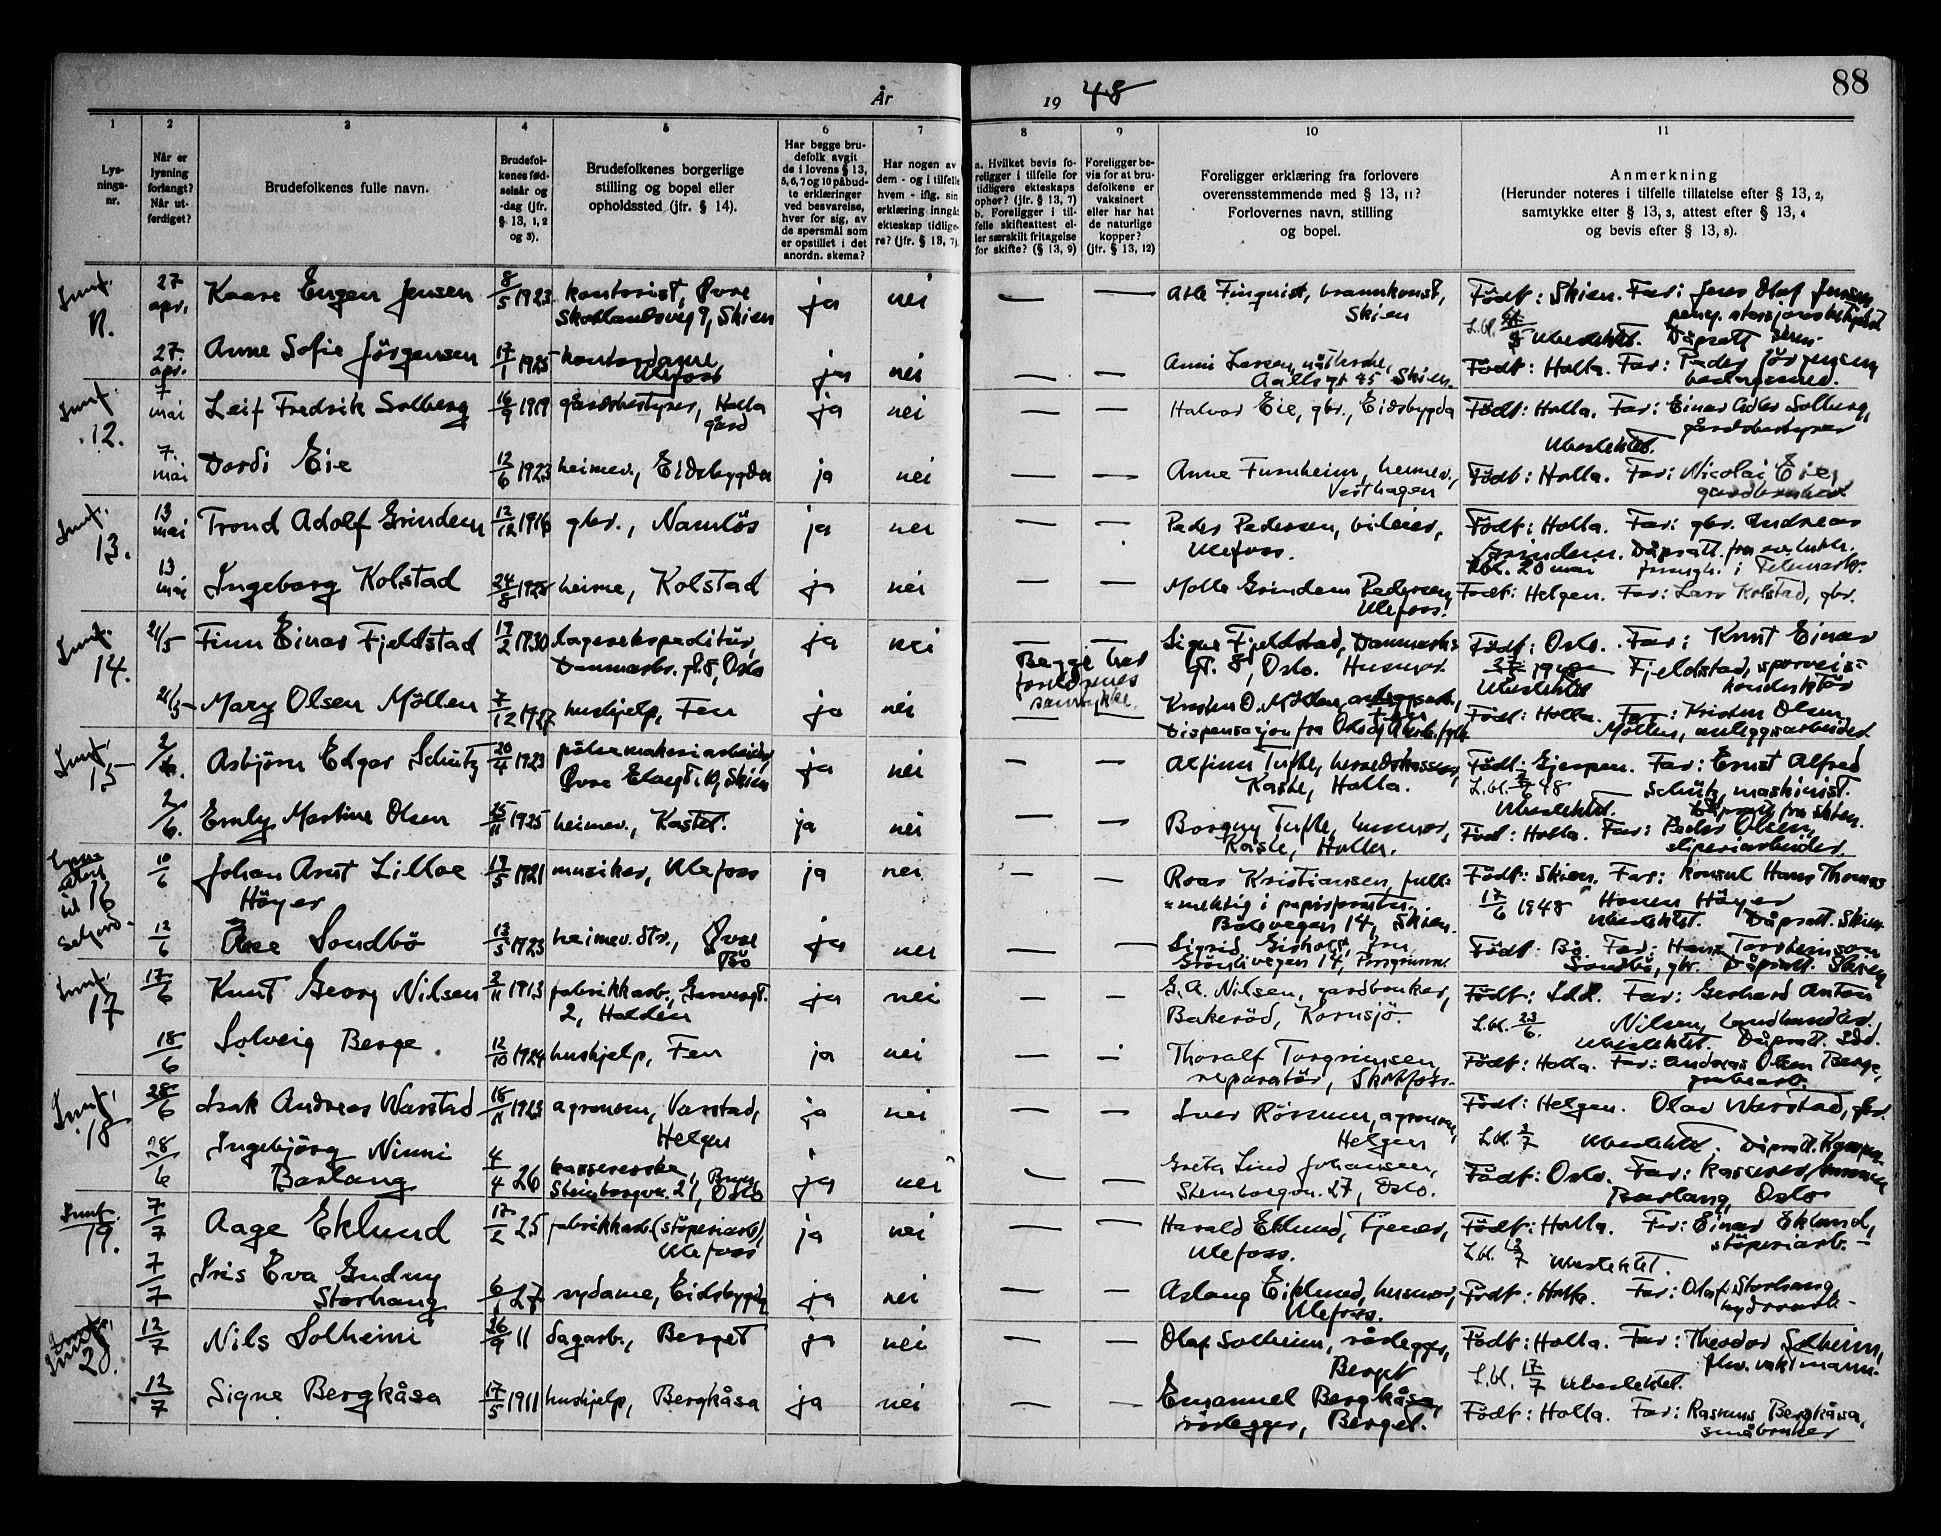 År 19 48
88
1
Lys-
nings-
nr.
2
Når er
lysning
forlangt?
Når ut-
ferdiget?
3
Brudefolkenes fulle navn.
4
Brudefol-
kenes fød-
selsår og
-dag (jfr.
§ 13, 1, 2
og 3).
5
Brudefolkenes borgerlige
stilling og bopel eller
opholdssted (jfr. § 14).
6
Har begge bru-
defolk avgit
de i lovens § 13,
5, 6, 7 og 10 påbud-
te erklæringer
ved besvarelse,
hver for sig, av
de spørsmål som
er opstillet i det
anordn. skema?
7
Har nogen av
dem - og i tilfelle
hvem - iflg. sin
erklæring inngåt
ekteskap tidlige-
re? (jfr. § 13, 7).
8
a. Hvilket bevis fo-
religger i tilfelle for
tidligere ekteskaps
ophør? (jfr. § 13, 7)
b. Foreligger i til-
felle skifteattest el-
ler særskilt fritagelse
for skifte? (§ 13, 9)
9
Foreligger be-
vis for at bru-
defolkene er
vaksinert
eller har hat
de naturlige
kopper?
(jfr. § 13, 12)
10
Foreligger erklæring fra forlovere
overensstemmende med § 13, 11?
Forlovernes navn, stilling
og bopel.
11
Anmerkning
(Herunder noteres i tilfelle tillatelse efter § 13, 2,
samtykke efter § 13, 3, attest efter § 13, 4
og bevis efter § 13, 8).
11. 27 apr. Kaare Eugen Jensen 8/5 1923 kontorist, Øvre ja nei — — Atle Finquist, brannkonst, Født: Skien. Far: Jens Olaf Jensen
Skotlandsveg 9, Skien Skien
Ubeslektet. Dåpsatt. Skien
27. apr. Anne Sofie Jörgensen 17/1 1925 kontordame ja nei — — Anni Larsen, Født: Holla. Far: Peder Jörgensen
Ulefoss Skien.
12. 7 mai Leif Fredrik Solberg 16/9 1919 gårdsbestyrer, Holla ja nei — — Halvor Eie, gbr., Eidsbygda Født: Holla. Far: Einar Solberg,
gård gårdsbestyrer
Ubeslektet.
7. mai Dordi Eie 12/6 1923 heimev., Eidsbygda ja nei — — Anne Furuheim, heimev., Født: Holla. Far: Nicolai Eie,
Vesthagen gardbruker
13. 13 mai Trond Adolf Grindem 12/12 1916 gbr., Namlös ja nei — — Peder Pedersen, bileier, Født: Holla. Far: gbr. Andreas
Ulefoss. Grindem. Dåpsatt. fra ev. luth.
Lbl. 20 mai i Telemark.
13 mai Ingeborg Kolstad 24/8 1928 heime, Kolstad ja nei — — Molle Grindem Pedersen, Født: Helgen. Far: Lars Kolstad, gbr.
Ulefoss.
14. 21/5 Finn Einar Fjeldstad 17/2 1930 lagerekspeditör, ja nei — — Signe Fjeldstad, Danmarks- Født: Oslo. Far: Knut Einar
Danmarksgt. 8, Oslo Begge har gt. 8, Oslo. Husmor. Fjeldstad, sporveis-
foreldrenes Ubeslektet konduktör
samtykke.
21/5 Mary Olsen Möllen 7/12 1927 hushjelp, Fen ja nei — — Kristen O. Möllen, Født: Holla. Far: Kristen Olsen
Dispensasjon fra Möllen, anleggsarbeider
15 2/6. Asbjörn Edgar Schütz 20/4 1923 pölsemakeriarbeider ja nei — — Alfinn Tufte, herredskasserer, Født: Gjerpen. Far: Ernst Alfred
Øvre Elvegt. 17, Skien Kaste, Holla. L.bl. 2/6 48 Schütz, maskinist.
Ubeslektet. Dåpsatt. fra Skien.
2/6. Emly Martine Olsen 25/11 1925 heimev., Kastet. ja nei — — Borgny Tufte, husmor, Född: Holla. Far: Peder Olsen,
Kaste, Holla. sliperiarbeider.
16 10/6 Johan Arnt Lilloe 17/5 1921 musiker, Ulefoss ja nei — — Roar Kristiansen, full- Født: Skien. Far: konsul Hans Thomas
Höyer mektig i 17/6 1948 Höyer
Bölevegen 14, Skien. Ubeslektet. Dåpsatt. Skien
12/6 Åse Sondbö 13/5 1923 heimev. dtr., Øvre ja nei — — Sigrid Eisholt, fru Født: Bö. Far: Hans Torsteinson
Bö Grönlivegen 14, Porsgrunn. Sondbö, gbr. Dåpsatt. Skien
17 17/6 Knut Georg Nilsen 2/11 1913 fabrikkarb., ja nei — — G. A. Nilsen, gardbruker, Født: Idd. Far: Gerhard Anton
2, Halden Bakeröd, Kornsjö. L.bl. 23/6. Nilsen, landhandler.
Ubeslektet. Dåpsatt. Idd.
18/6 Solveig Berge 12/10 1924 hushjelp, Fen ja nei — — Thoralf Torgrimsen, Født: Holla. Far: Andreas Olsen Berge,
reparatör, Skotfoss. grubearb.
18 28/6 Isak Andreas Warstad 18/11 1923 agronom, Varstad, ja nei — — Iver Rörmun, agronom, Født: Helgen. Olav Warstad, gbr.
Helgen Helgen L.bl. 2/7 Ubeslektet. Dåpsatt.
28/6 Ingebjörg Ninni 4/4 26 kassererske, ja nei — — Greta Lind Johansen, Født: Oslo. Far: kasserer
Barlang Steinborgvn. 27, Oslo Steinborgvn. 27, Oslo. Barlang, Oslo
19. 7/7 Aage Eklund 17/2 25 fabrikkarb. (stöperiarb), ja nei — — Harald Eklund, tjener, Født: Holla. Far: Einar Eklund,
Ulefoss Ulefoss. L.bl. Ubeslektet. stöperiarb.
7/7 Iris Eva Gudny 6/1 27 sydame, Eidsbygda ja nei — — Aslaug Eiklund, husmor, Født: Holla. Far: Olaf Storhaug
Storhaug Ulefoss.
20 12/7 Nils Solheim 26/9 11 dagarb., Berget ja nei — — Olaf Solheim, rörlegger, Født: Holla. Far: Theodor Solheim,
Berget L.bl. 17/7 Ubeslektet. fhv. vaktmann.
12/7 Signe Bergkåsa 17/5 1911 hushjelp, Bergkåsa ja nei — — Emanuel Bergkåsa, Født: Holla. Far: Rasmus Bergkåsa,
rörlegger, Berget. småbruker